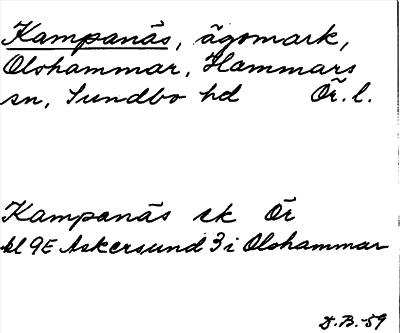 Kampanäs, ägomark,
Olshammar, Hammars
sn, Sundbo hd Ör. l.
Kampanäs sk Ör
bl 9E Askersund 3 i Olshammar
D.B. -59